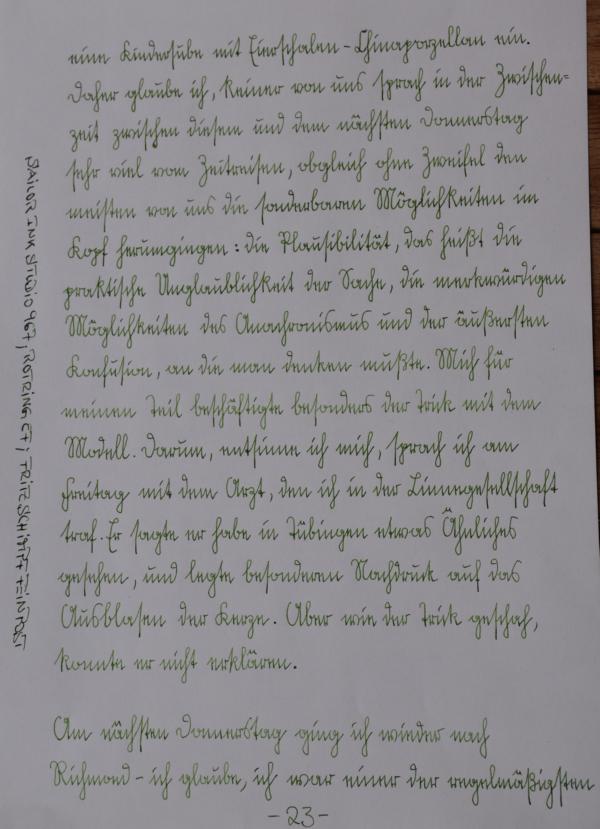 eine Kinderstube mit Eierschalen-Chinaporzellan ein.
Daher glaube ich, keiner von uns sprach in der Zwischen=
zeit zwischen diesem und dem nächsten Donnerstag
sehr viel vom Zeitreisen, obgleich ohne Zweifel den
meisten von uns die sonderbaren Möglichkeiten im
Kopf herumgingen: die Plausibilität, das heißt die
praktische Unglaublichkeit der Sache, die merkwürdigen
Möglichkeiten des Anachronismus und der äußersten
Konfusion, an die man denken mußte. Mich für
meinen Teil beschäftigte besonders der Trick mit dem
Modell. Darum, entsinne ich mich, sprach ich am
Freitag mit dem Arzt, den ich in der Linnegesellschaft
traf. Er sagte er habe in Tübingen etwas Ähnliches
gesehen, und legte besonderen Nachdruck auf das
Ausblasen der Kerze. Aber wie der Trick geschah,
konnte er nicht erklären.
Am nächsten Donnerstag ging ich wieder nach
Richmond - ich glaube, ich war einer der regelmäßigsten
-23-
SAILOR INK STUDIO 967; ROTRING EF; FRITZ SCHIMPF FEINPOST